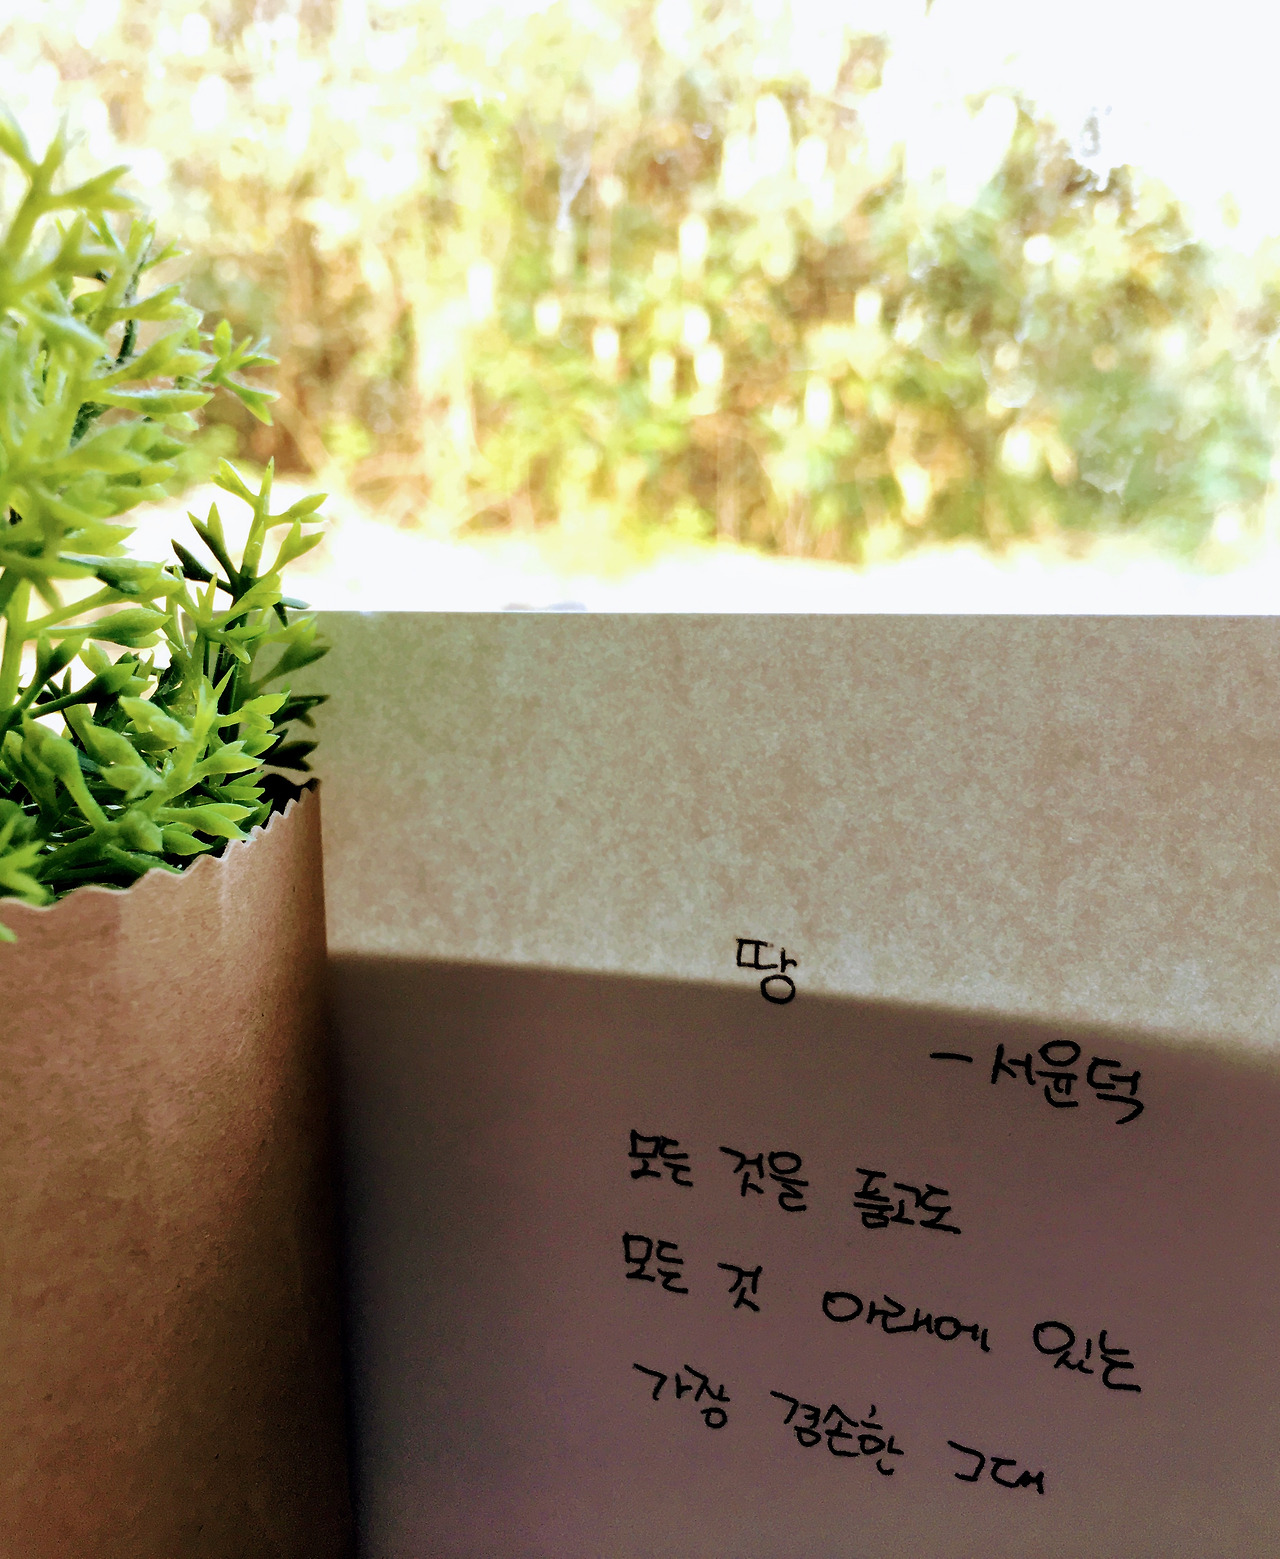 땅
- 서윤덕
모든 것을 품고도
모든 것 아래에 있는
가장 겸손한 그대